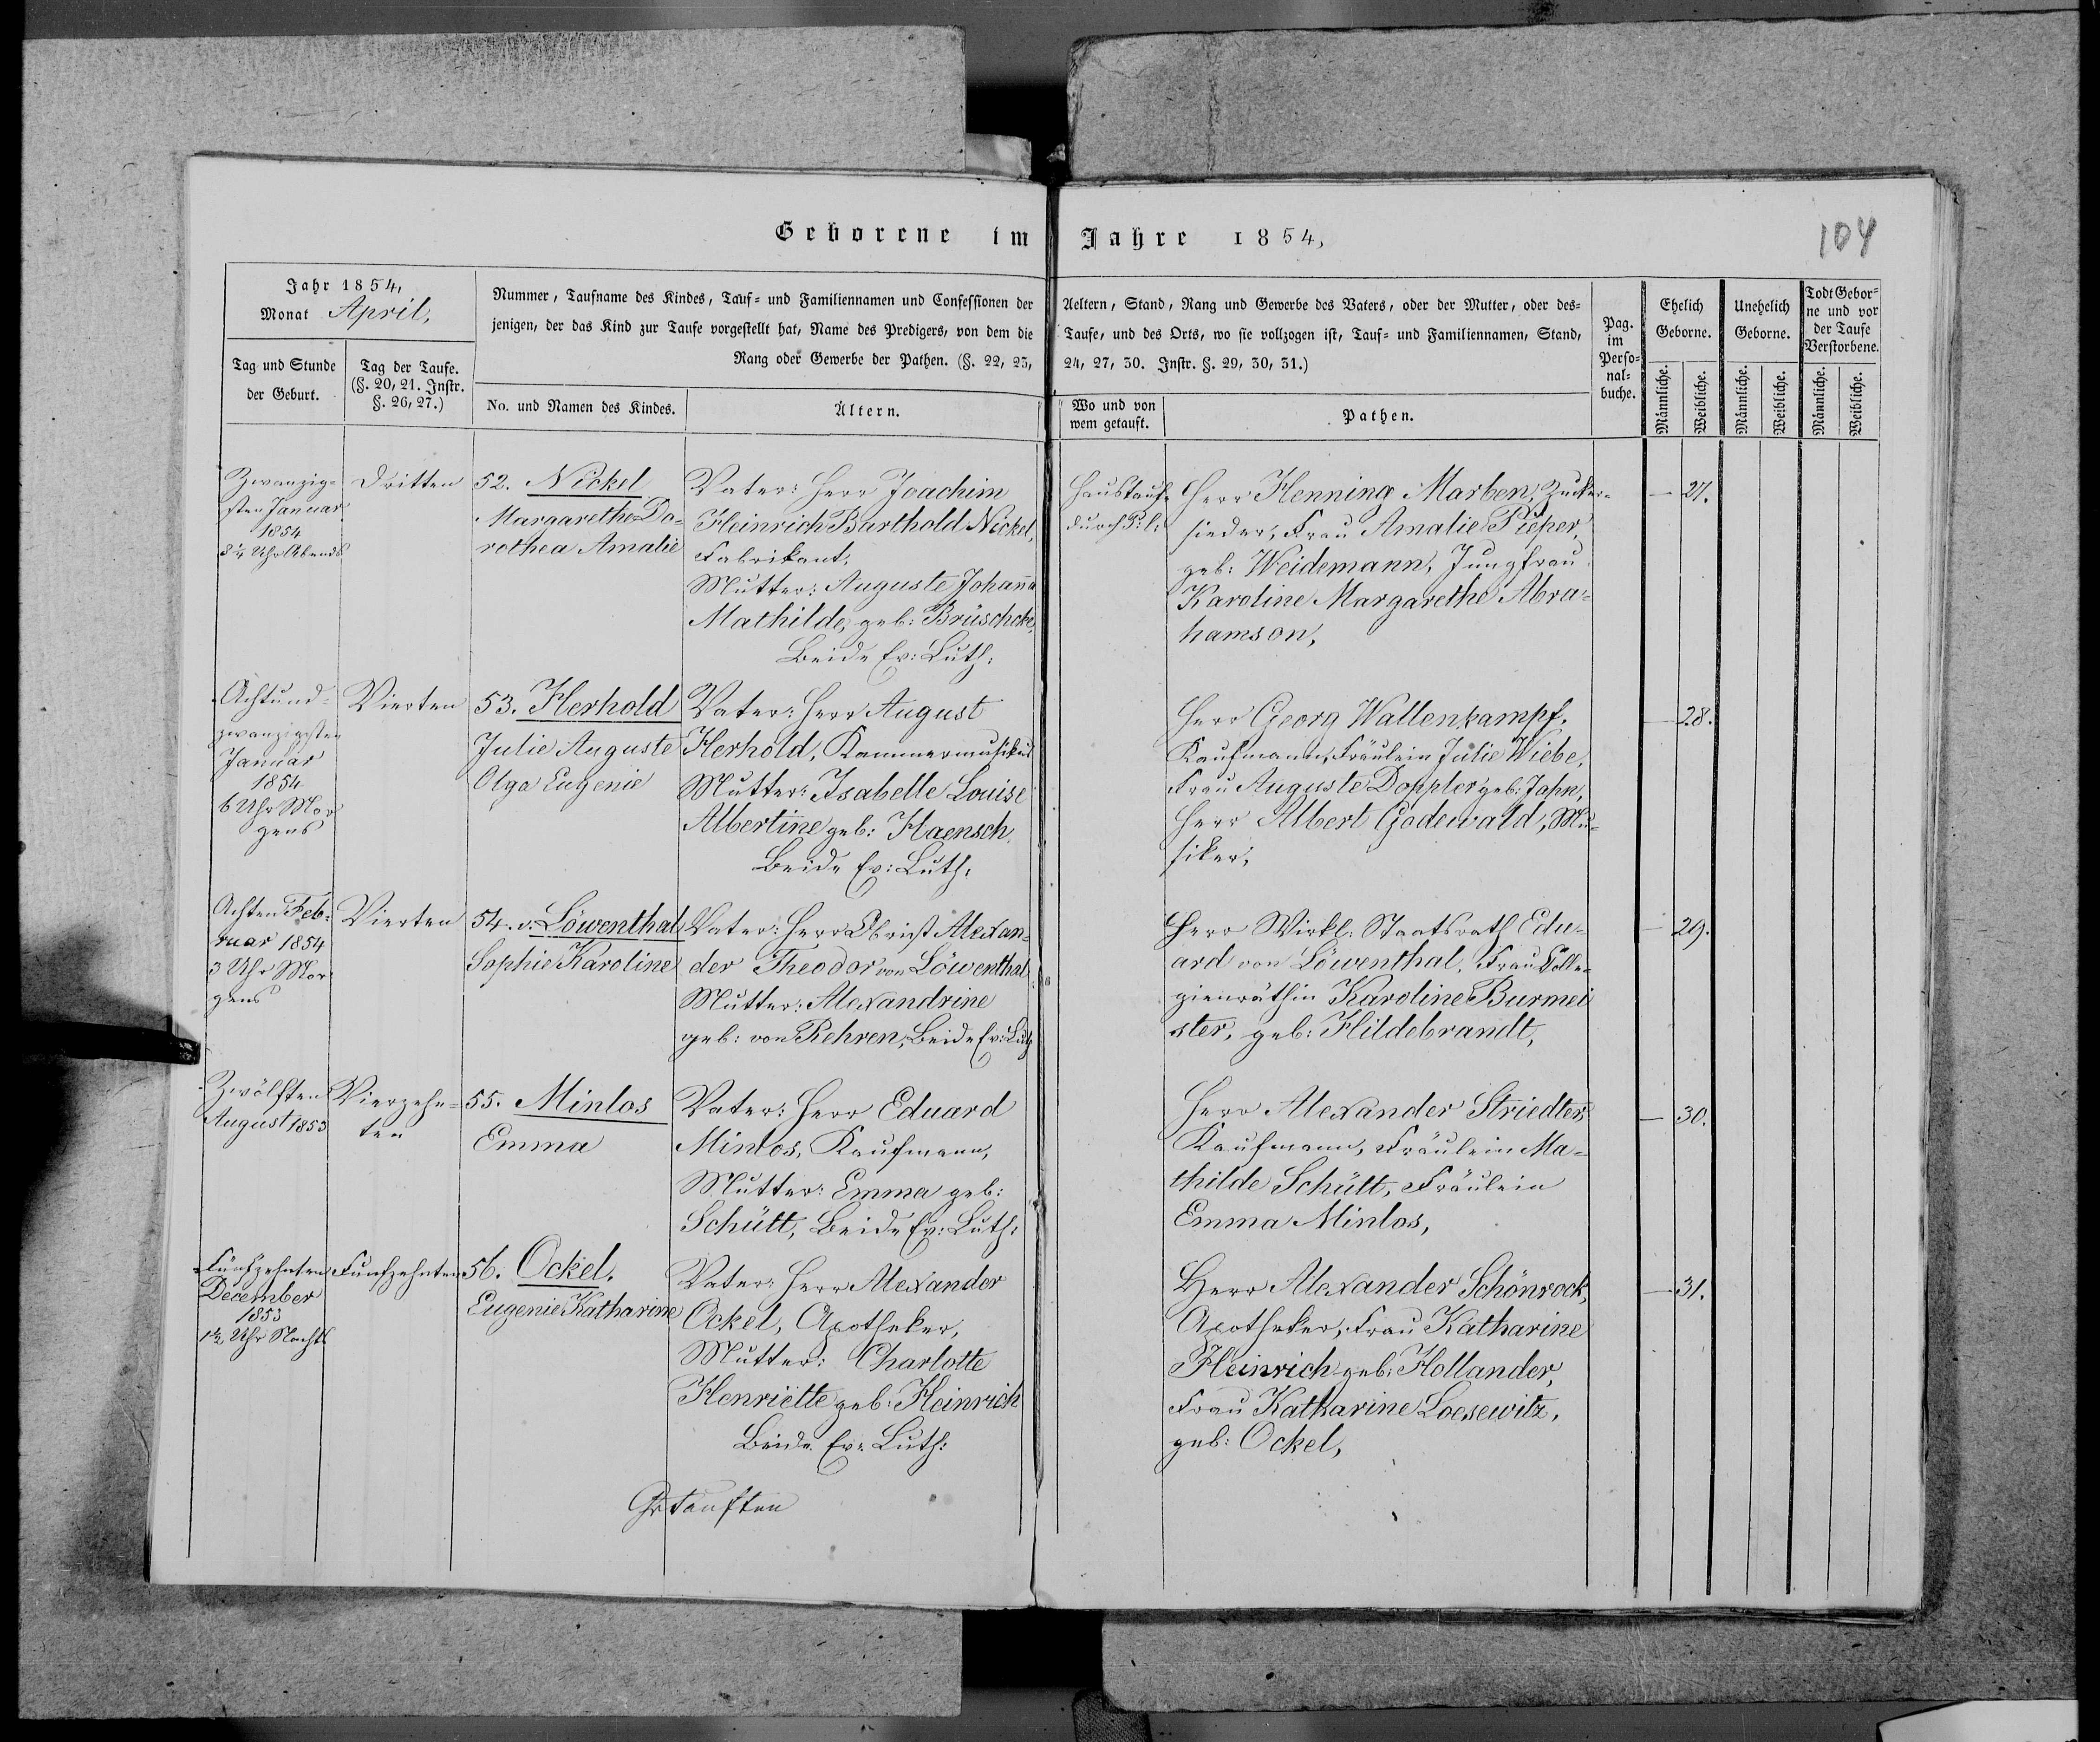 Geborene im Jahre 1854,
104
Jahr 1854,
Monat April,
Tag und Stunde
der Geburt.
Tag der Taufe.
(§. 20, 21. Instr.
§. 26, 27.)
Nummer, Taufname des Kindes, Tauf- und Familiennamen und Confessionen der
jenigen, der das Kind zur Taufe vorgestellt hat, Name des Predigers, von dem die
Rang oder Gewerbe der Pathen. (§. 22, 23,
No. und Namen des Kindes.
Ältern.
Aeltern, Stand, Rang und Gewerbe des Vaters, oder der Mutter, oder des-
Taufe, und des Orts, wo sie vollzogen ist, Tauf- und Familiennamen, Stand,
24, 27, 30. Instr. §. 29, 30, 31.)
Wo und von
wem getauft.
Pathen.
Pag.
im
Perso-
nal-
buche.
Ehelich
Geborne.
Unehelich
Geborne.
Todt Gebor-
ne und vor
der Taufe
Verstorbene.
Männliche.
Weibliche.
Männliche.
Weibliche.
Männliche.
Weibliche.
Zwanzig-
sten Januar
1854
8¼ Uhr Abends
Dritten
52. Nickel
Margarethe Do-
rothea Amalie
Vater: Herr Joachim
Heinrich Barthold Nickel,
Fabrikant,
Mutter: Auguste Johanna
Mathilde, geb: Brüschcke,
Beide Ev: Luth:
Haustaufe
durch P: l:
Herr Henning Marben, Zucker-
sieder, Frau Amalie Pieper,
geb: Weidemann, Jungfrau
Karoline Margarethe Abra-
hamson,
— 27.
Achtund-
zwanzigsten
Januar
1854
6 Uhr Mor
gens
Vierten
53. Herhold
Julie Auguste
Olga Eugenie
Vater: Herr August
Herhold, Kammermusikus
Mutter: Isabelle Louise
Albertine geb: Haensch.
Beide Ev: Luth:
Herr Georg Wallenkampf,
Kaufmann, Fräulein Julie Wiebe,
Frau Auguste Doppler geb: Jahn,
Herr Albert Godewald, Mu-
siker,
— 28.
Achten Feb-
ruar 1854
3 Uhr Mor
gens
Vierten
54. v. Löwenthal
Sophie Karoline
Vater: Herr Obrist Alexan-
der Theodor von Löwenthal
Mutter: Alexandrine
geb: von Rehren, Beide Ev: Luth
Herr Wirkl: Staatsrath Edu-
ard von Löwenthal, Frau Colle-
gienräthin Karoline Burmei
ster, geb: Hildebrandt,
— 29.
Zwölften
August 1853
Vierzehn-
ten
55. Minlos
Emma
Vater: Herr Eduard
Minlos, Kaufmann,
Mutter: Emma geb:
Schütt, Beide Ev: Luth:
Herr Alexander Striedter,
Kaufmann, Fräulein Ma-
thilde Schütt, Fräulein
Emma Minlos,
— 30.
Fünfzehnten
December
1853
1½ Uhr Nachts
Funfzehnten
56. Ockel.
Eugenie Katharine
Vater: Herr Alexander
Ockel, Apotheker,
Mutter: Charlotte
Henriette geb: Heinrich
Beide Ev: Luth:
Herr Alexander Schönrock,
Apotheker, Frau Katharine
Heinrich geb: Hollander,
Frau Katharine Loesewitz,
geb: Ockel,
— 31.
Getauften